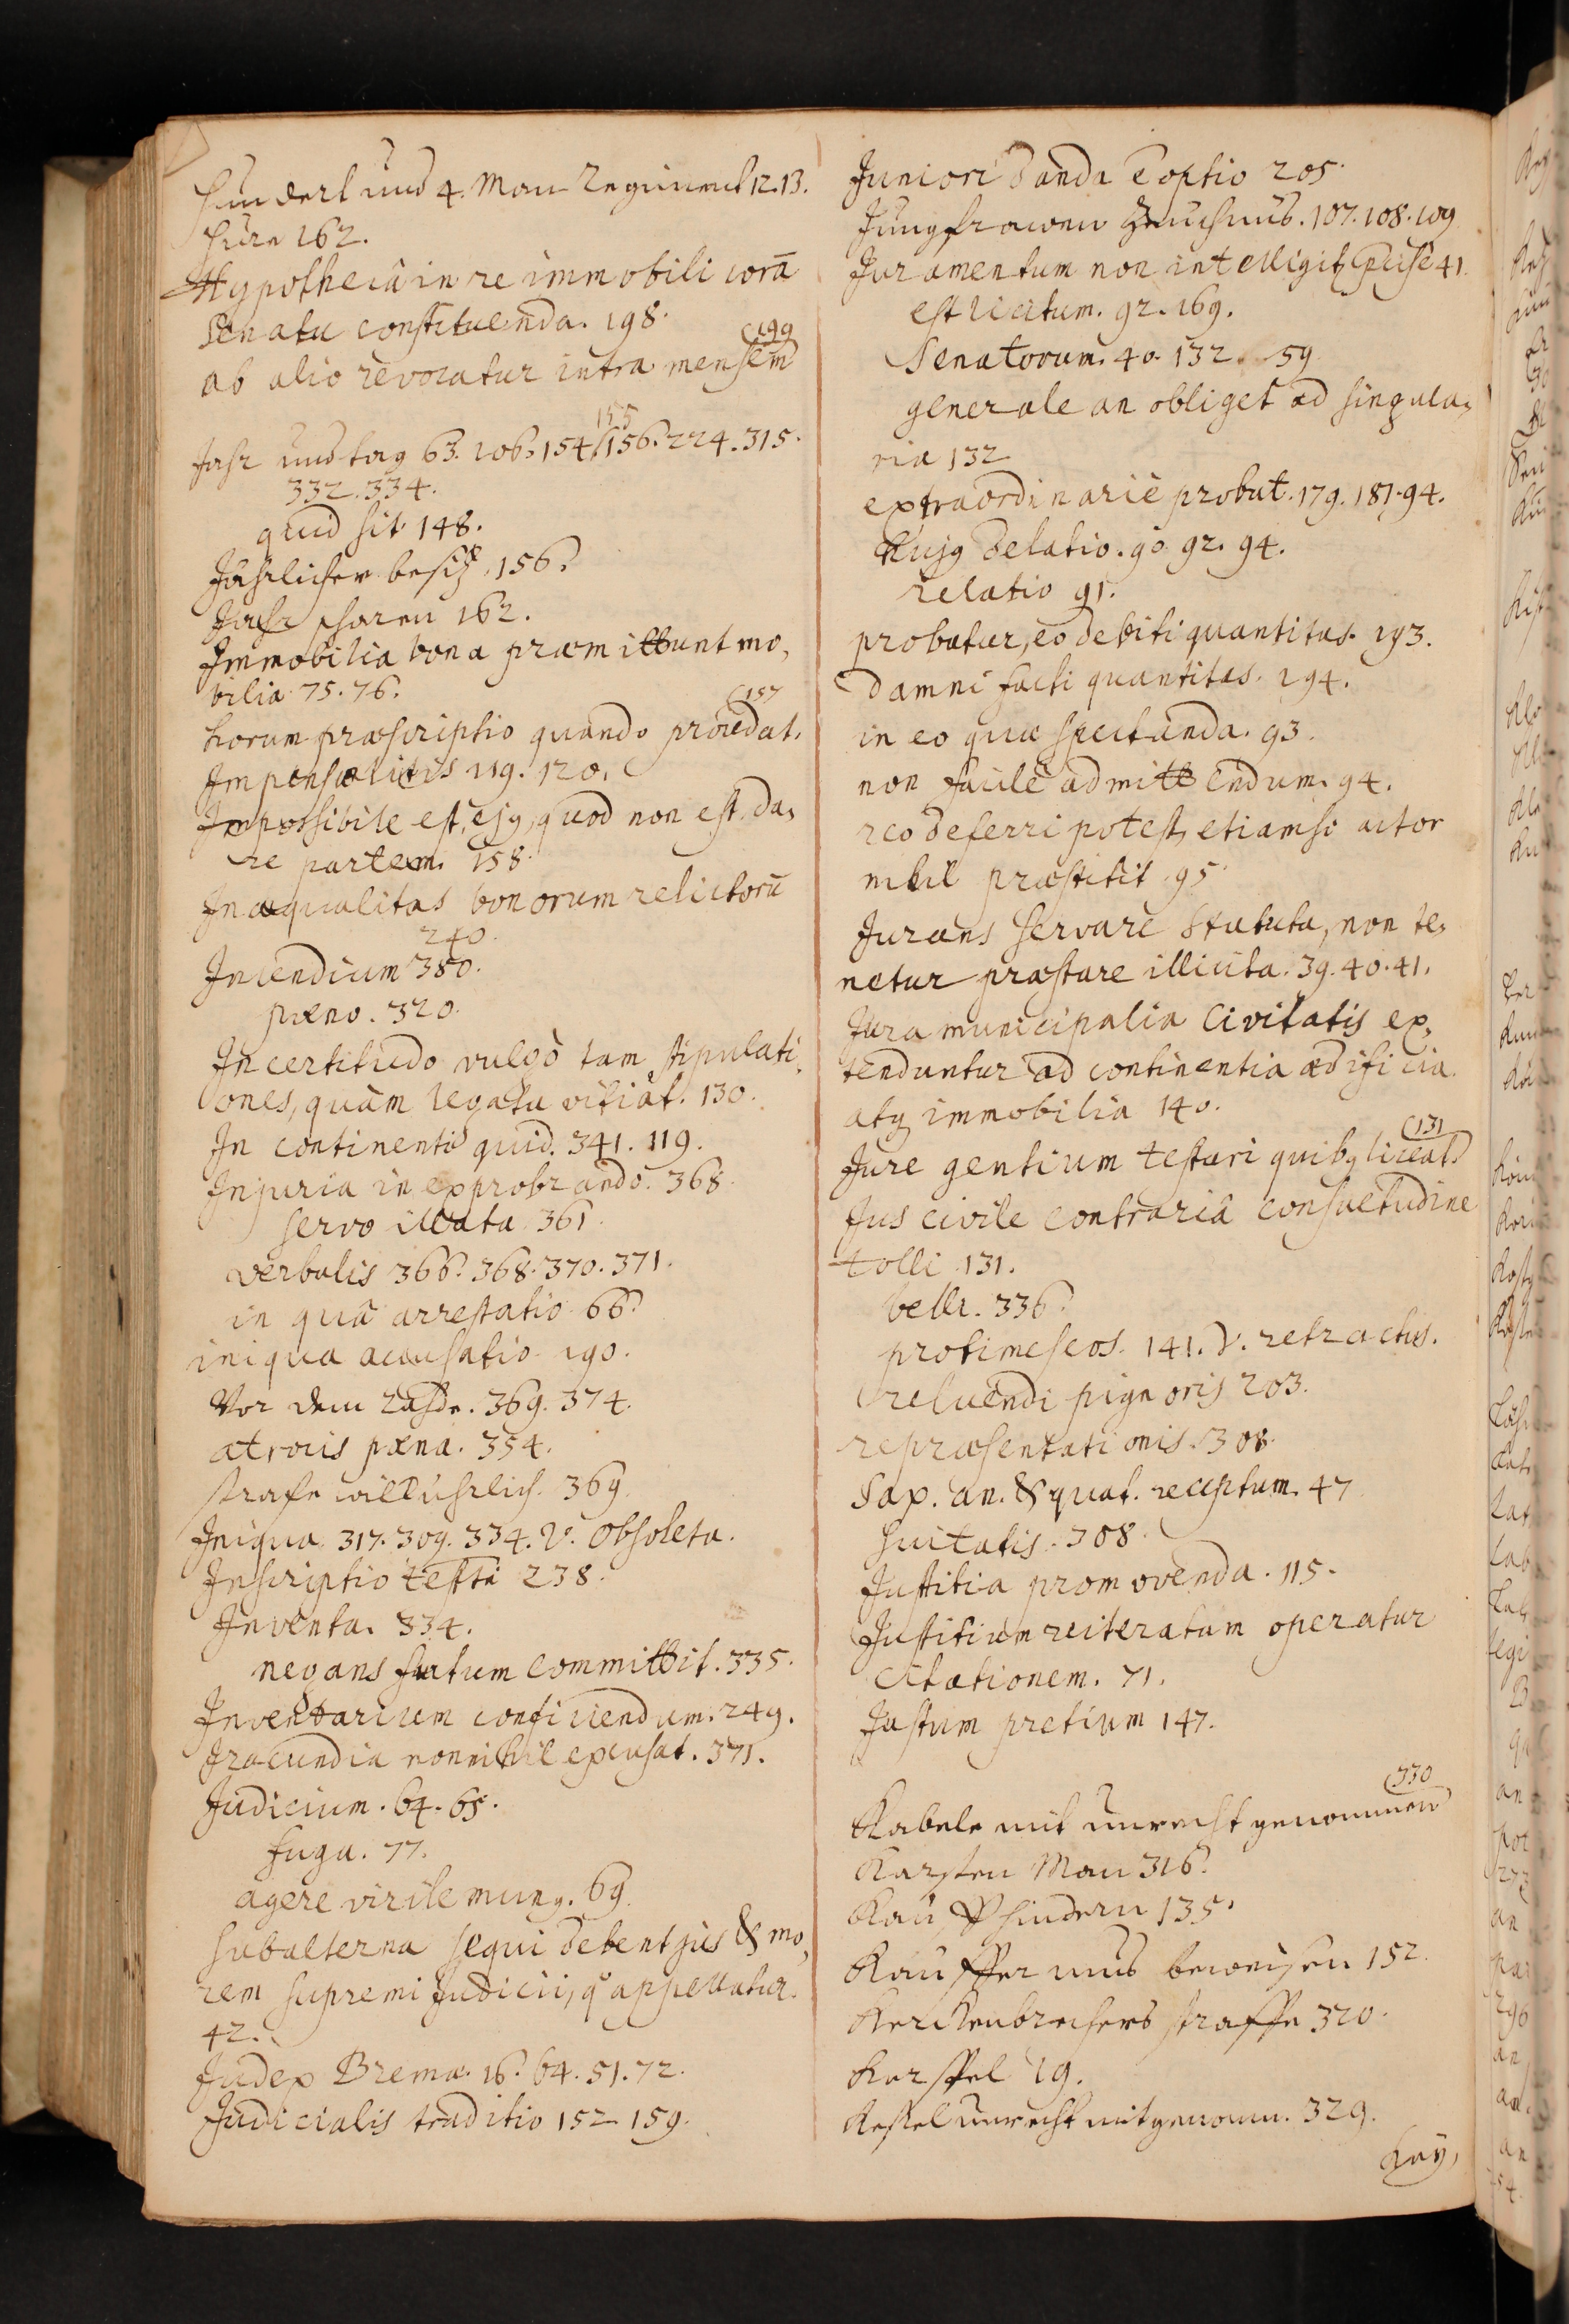 Hundert und 4. Man Regiment 12. 13.
Hure 162.
Hypotheca in re immobili corā
Senatu constituenda. 198.
ab alio revocatur intra mensem (199
Jahr und tag 63. 106. 154. 155 156. 224. 315.
332. 334.
quid sit 148.
Jährlicher besitz 156.
Jahr scharen 162.
Immobilia bona præmittunt mo,
bilia 75. 76.
horum præscriptio quando procedat. (157
Impensæ litis 119. 120.
Impossibile est, ejq, quod non est. da,
re partem. 158.
Inæqualitas bonorum relictorū
240.
Incendium 380.
pæno. 320.
Incertitudo vulgò tam stipulati,
ones, quàm legata vitiat. 130.
In continenti quid. 341. 119.
Injuria in exprobrando. 368.
servo illata 361.
verbalis 366. 368. 370. 371.
in quâ arrestatio 66.
iniqua accusatio 190.
Vor dem Rahde. 369. 374.
atrocis pæna. 354.
strafe willkührlich. 369.
Iniqua 317. 309. 334. V. Obsoleta.
Inscriptio testti 238.
Inventa. 334.
negans furtum committit. 335.
Inventarium conficiendum. 249.
Iracundia nonnihil excusat. 371.
Judicium. 64. 65.
fuga. 77.
agere virile munq. 69.
subalterna sequi debent jus & mo,
rem supremi Judicii, q° appellatur.
42.
Judex Bremæ. 16. 64. 51. 72.
Judicialis traditio 152 159.
Juniori danda e optio 205.
Jungfrawen 107. 108. 109
Juramentum non intelligitr 41.
est licitum. 92. 169.
Senatorum. 40. 132. 59
generale an obliget ad singula,
ria 132
extraordinariè probat. 179. 187. 94.
hujq delatio. 90 92. 94.
relatio 91.
probatur, eo debiti quantitas. 193.
damni facti quantitas. 194.
in eo quæ spectanda. 93.
non facilè admittendum. 94.
reo deferri potest, etiamsi actor
nihil præstitit 95.
Jurans servare Statuta, non te,
netur præstare illicita. 39. 40. 41.
Jura municipalia Civitatis ex,
tenduntur ad continentia ædificia
atq immobilia 140.
Jure gentium testari quibq liceat. (131
Jus civile contrariâ consuetudine
tolli 131.
belli. 336.
protimeseos. 141. V. retractus.
reluendi pignoris 203.
repræsentationis. 308.
Sax. an. & quat. receptum. 47
suitatis. 308.
Justitia promovenda. 115.
Justitium reiteratam operatur
citationem. 71.
Justum pretium 147.
Kabele mit unrecht genommen (330
Karsten Man 316.
Kau, Phindern 135.
Kauffer mus beweisen 152.
Kerckenbrechers straffe 320.
Kerspel 19.
Kessel unrecht mitgenomn. 329.
Kay,